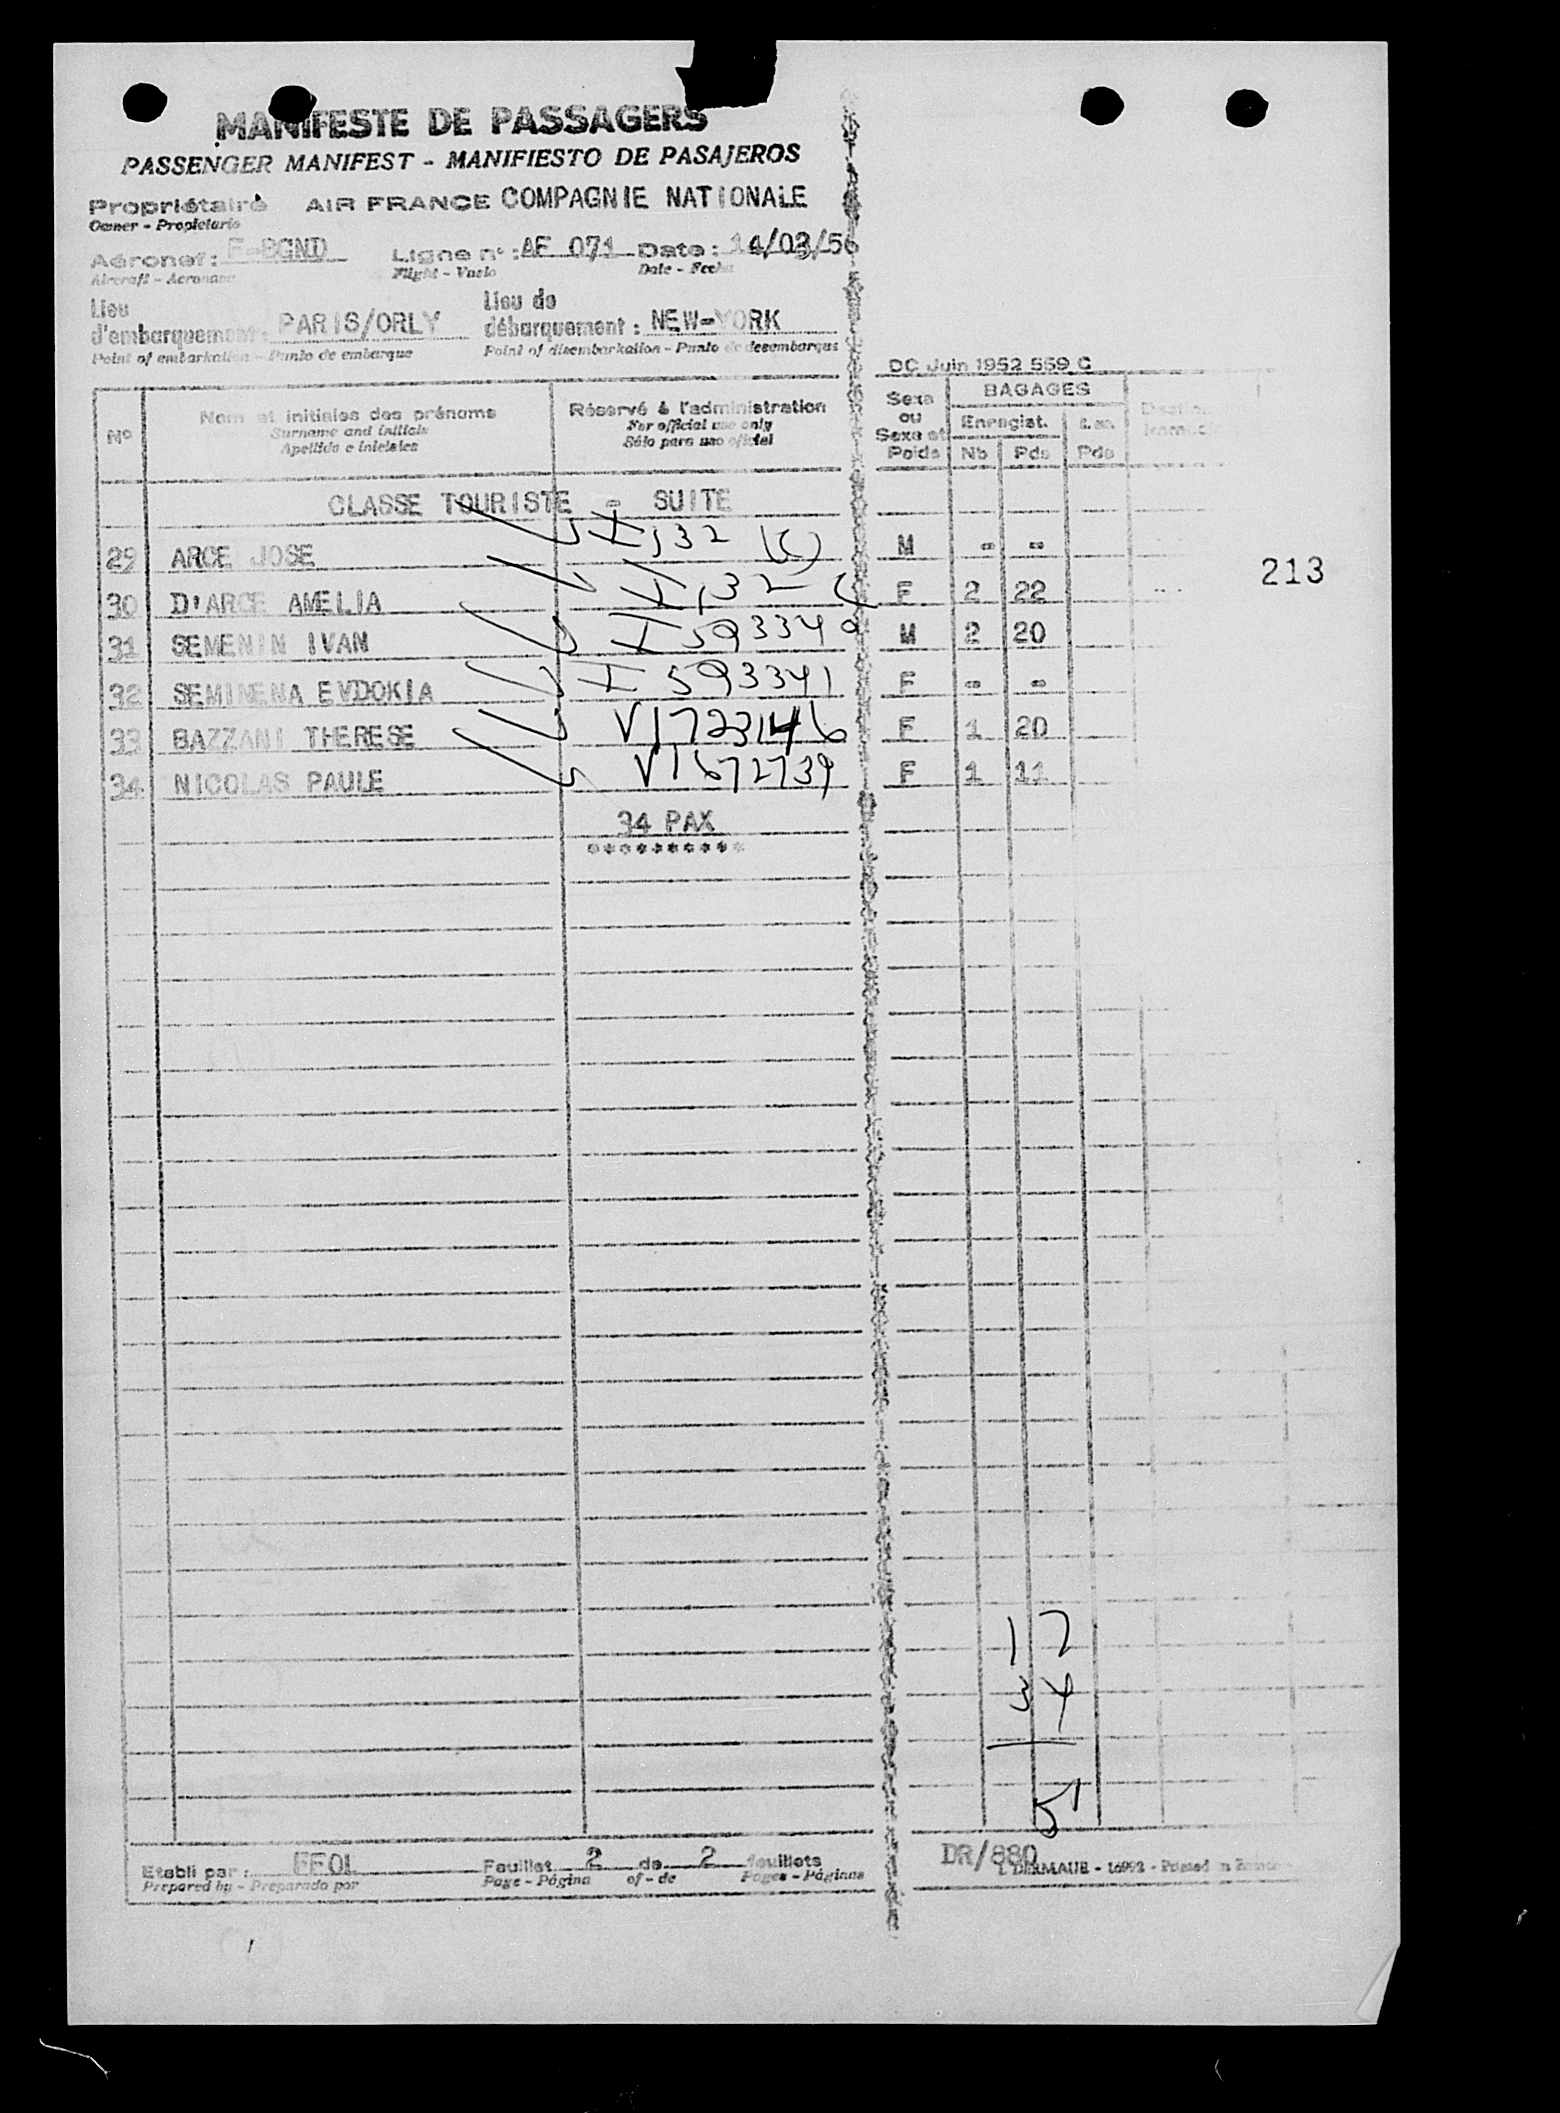 MANIFESTE DE PASSAGERS
PASSENGER MANIFEST - MANIFIESTO DE PASAJEROS
Propriétaire AIR FRANCE COMPAGNIE NATIONALE
Owner - Propietario
Aéronef : F-BGND Ligne n° : AF 071 Date : 14/03/56
Aircraft - Aeronave Flight - Vuelo Date - Fecha
Lieu d'embarquement : PARIS/ORLY Lieu de débarquement : NEW-YORK
Point of embarkation - Punto de embarque Point of disembarkation - Punto de desembarque
DC Juin 1952 559 C
N° Nom et initiales des prénoms Réservé à l'administration Sexe ou Sexe et Poids BAGAGES
Surname and initials For official use only Enregist.
Apellido e iniciales Sólo para uso oficial Nb Pds Pds
CLASSE TOURISTE - SUITE
29 ARCE JOSE I,32 (C) M - -
213
30 D'ARCE AMELIA I,32 C F 2 22
31 SEMENIN IVAN I 593340 M 2 20
32 SEMINENA EVDOKIA I 593341 F - -
33 BAZZANI THERESE V1723146 F 1 20
34 NICOLAS PAULE V1672739 F 1 11
34 PAX
**********
17
34
51
Etabli par : EEOL Feuillet 2 de 2 feuillets
Prepared by - Preparado por Page - Página of - de Pages - Páginas
DR/880